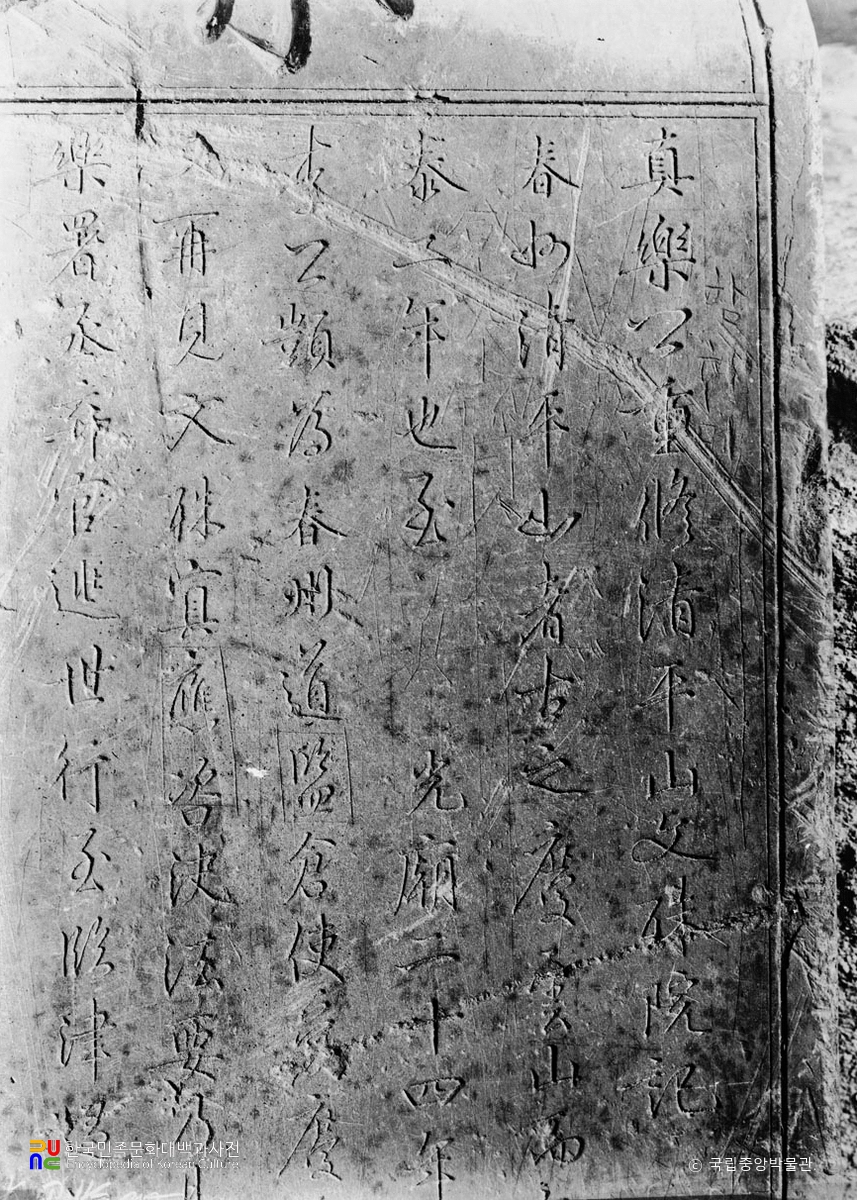 真樂公重修清平山文殊院記
春州清平山者古之慶雲山而
泰二年也至
光廟二十四年
李公顗爲春州道監倉使愛慶
再見文殊冥應咨決法要乃
樂署丞棄官逃世行至臨津
한국민족문화대백과사전
Encyclopedia of Korean Culture
© 국립중앙박물관